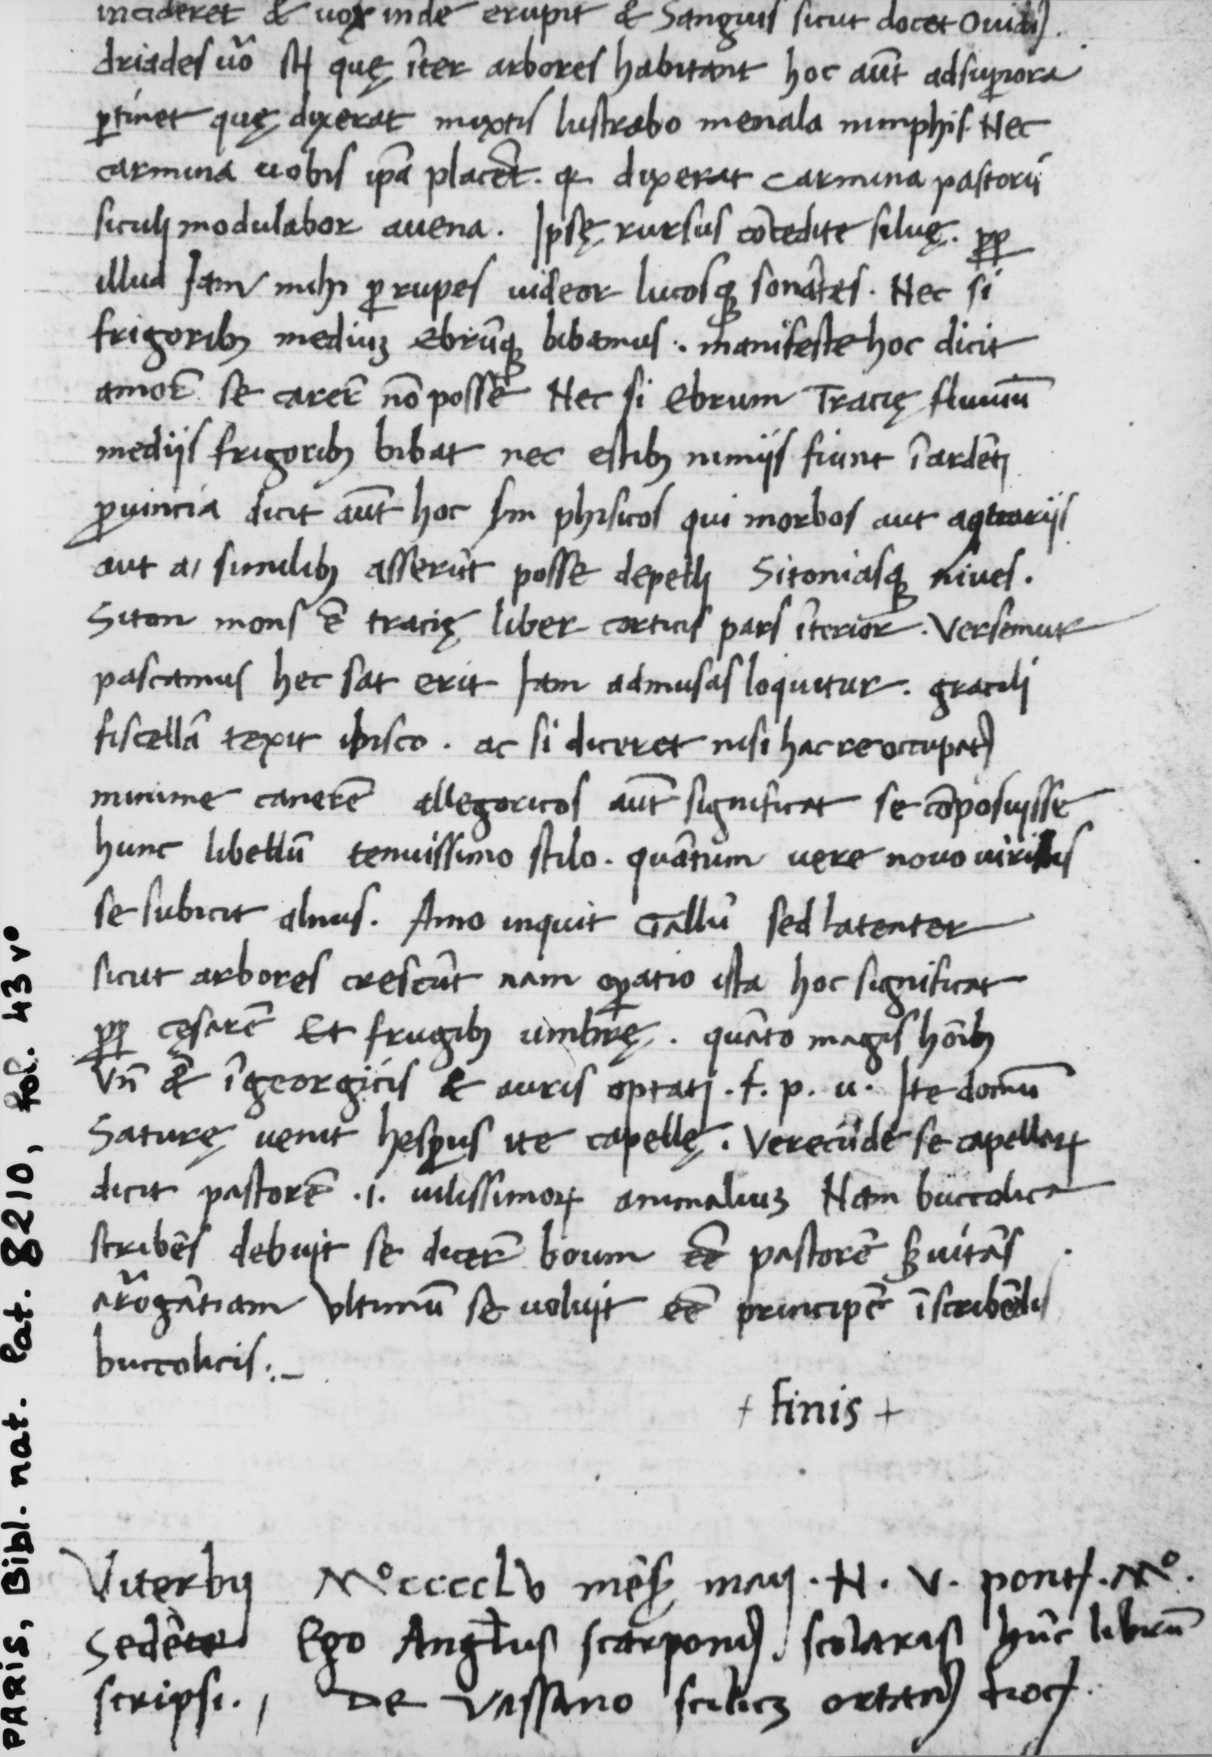 incideret & uox inde erupit & Sanguis sicut docet Ouidiꝰ.
driades uo᷒ st̄ quę īter arbores habitant hoc aūt ad suꝑiora
ꝑtinet quę dixerat mixtis lustrabo menala nimphis Nec
carmina uobis ip̄a placēt. qꝛ dixerat Carmina pastorū
siculi modulabor auena. Ipsę rursus cōcedite siluę. ꝓꝑ
illud Iam mihi ꝑ rupes uideor lucosqꝫ sonātes. Nec si
frigoribꝫ mediuꝫ Ebrūqꝫ bibamus. manifeste hoc dicit
amorē se carere nō posse Nec si Ebrum Tracię fluuiū
medijs frigoribꝫ bibat nec estibꝫ nimijs fiunt ī ardēti
ꝓuincia dicit aūt hoc sm phisicos qui morbos aut a 9trarijs
aut a similibꝫ asserūt posse depelli Sitoniasqꝫ niues.
Siton mons ē tracię liber corticis pars īterior. Versemur
pascamus hec sat erit Iam ad musas loquitur. gracili
fiscellā texit ibisco. ac si diceret nisi hac re occupatꝰ
minime canerē allegoricos aūt significat se cōposuisse
hunc libellū tenuissimo stilo. quātum uere nouo uiridis
se subicit alnus. Amo inquit Gallū sed latenter
sicut arbores crescūt nam oꝑatio ista hoc significat
ꝓꝑ cęsarē Et frugibꝫ umbrę. quāto magis hoībꝫ
Vn̄ & ī georgicis & auris optati. f. p. u. Ite domū
Saturę uenit hesꝑus ite capellę. Verecūde se capellaꝝ
dicit pastorē .i. uilissimoꝝ animaliuꝫ Nam buccolica
scribēs debuit se dicere boum eē pastorē s; uitās
arrogātiam Vltimū se uoluit eē principē ī scribēdis
buccolicis:_
+ finis +
Viterbij Mº ccccLv mēs maij. N. V. pontf. Mº.
Sedēte Ego Angl̄us scarponꝰ scolaras hūc librū
scripsi., De Vassano scilicꝫ
PARIS, Bibl. nat. Lat. 8210, fol. 43 vº